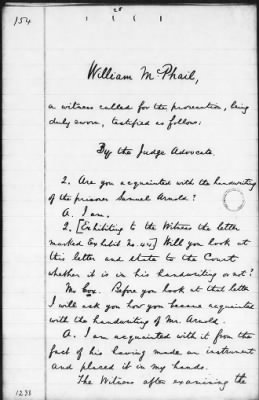 154
28
William McPhail,
a witness called for the prosecution, being
duly sworn, testified as follows:
By the Judge Advocate.
Q. Are you acquainted with the handwriting
of the prisoner Samuel Arnold?
A. I am.
Q. [Exhibiting to the Witness the letter
marked Exhibit No. 44] Will you look at
this letter and state to the Court
whether it is in his handwriting or not?
Mr Cox. Before you look at that letter
I will ask you how you became acquainted
with the handwriting of Mr. Arnold.
A. I am acquainted with it from the
fact of his having made an instrument
and placed it in my hands.
The Witness after examining the
1238